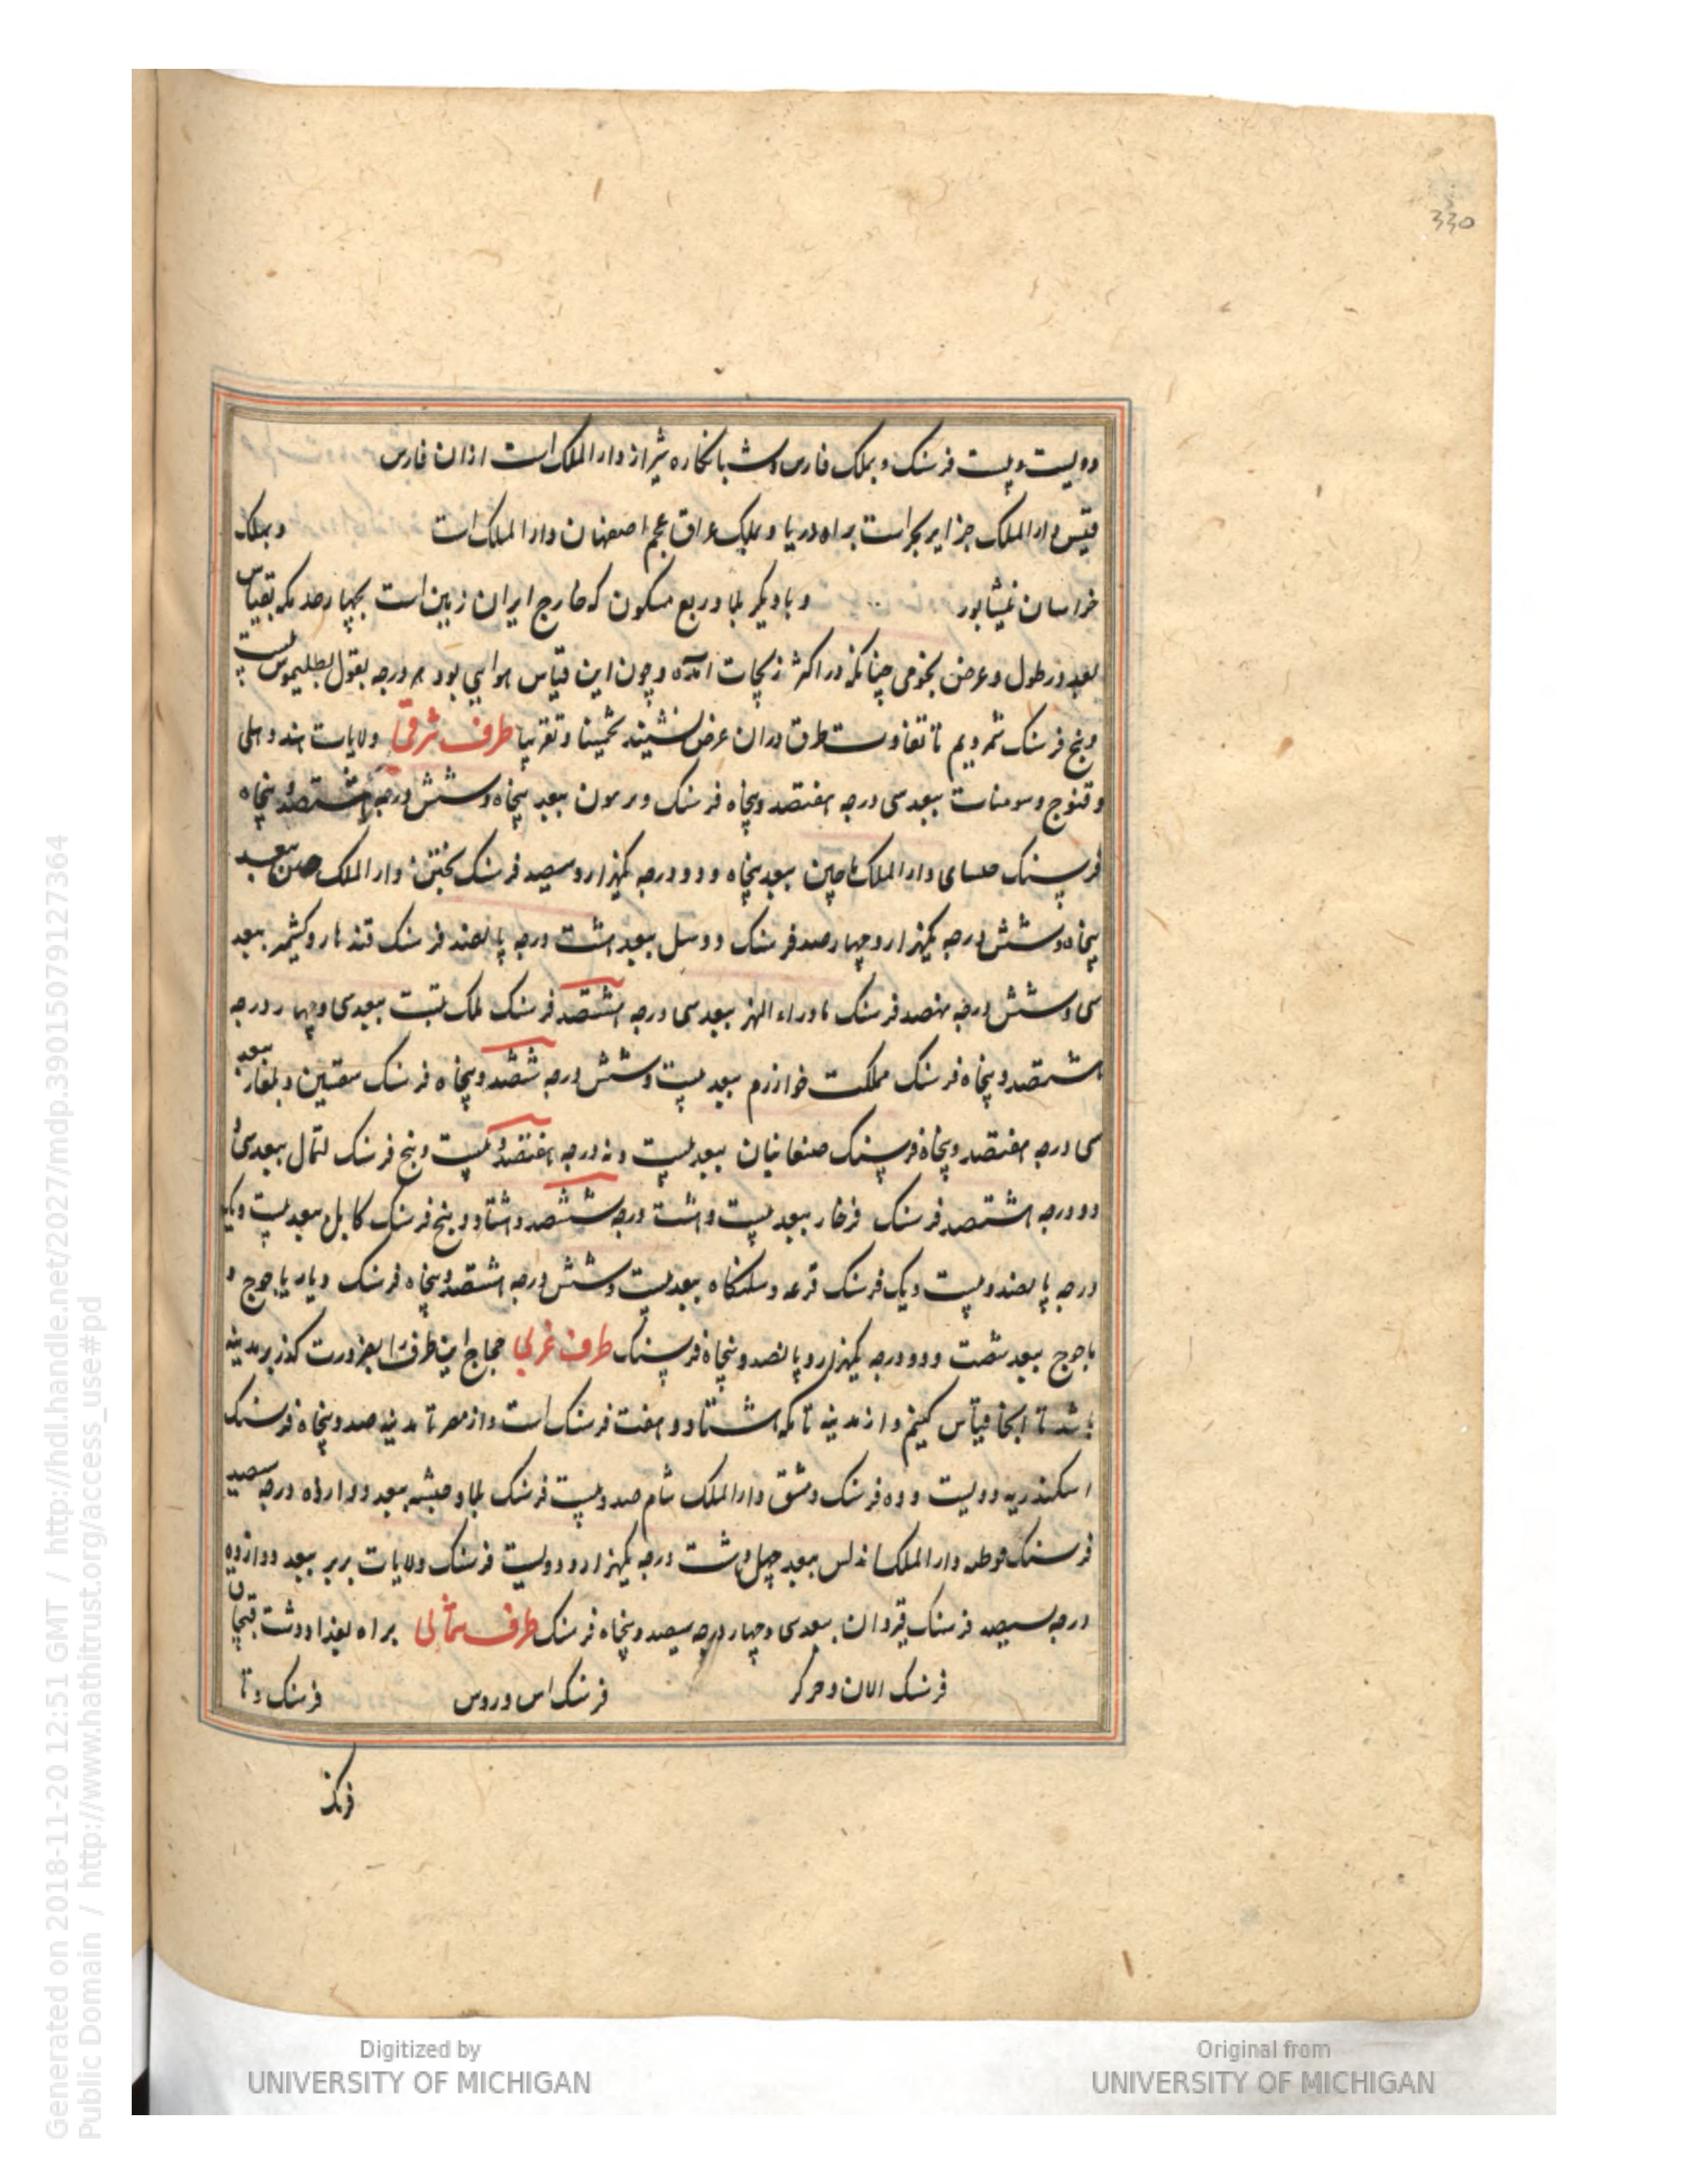 330
دویست و بیست فرسنک و بملک فارس و شبانکاره شیراز دار الملک است ازان فارس
قیس دار الملک جزایر بحر است براه دریا و بملک عراق عجم اصفهان دار الملک است و بملک
خراسان نیشابور و با دیکر بلاد ربع مسکون که خارج ایران زمین است بچهار حد مکه بقیاس
بعد در طول و عرض نجومی چنانکه در اکثر زیجات امده و چون این قیاس هوایی بود هر درجه بقول بطلیموس بیست
و پنج فرسنک شمردیم تا تفاوت طرق دران عرض نشیند تخمینا و تقریبا طرف شرقی ولایات هند و دهلی
و قنوج و سومنات ببعد سی درجه هفتصد و پنجاه فرسنک و ببعد پنجاه و شش درجه هشتصد و پنجاه
فرسنک دار الملک ماچین ببعد پنجاه و دو درجه یکهزار و سیصد فرسنک دار الملک ببعد
پنجاه و شش درجه یکهزار و چهارصد فرسنک ببعد هشت درجه پانصد فرسنک قندهار و کشمیر ببعد
سی و شش درجه نهصد فرسنک ماوراء النهر ببعد سی درجه هشتصد فرسنک ملک تبت ببعد سی و چهار درجه
هشتصد و پنجاه فرسنک مملکت خوارزم ببعد بیست و شش درجه ششصد و پنجاه فرسنک سقسین و بلغار ببعد
سی درجه هفتصد و پنجاه فرسنک صغانیان ببعد بیست و نه درجه هفتصد و بیست و پنج فرسنک ببعد سی و
دو درجه هشتصد فرسنک فرخار ببعد بیست و هشت درجه ششصد و هشتاد و پنج فرسنک کابل ببعد بیست و یک
درجه پانصد و بیست و یک فرسنک ببعد بیست و شش درجه هشتصد و پنجاه فرسنک دیار یاجوج و
ماجوج ببعد شصت و دو درجه یکهزار و پانصد و پنجاه فرسنک طرف غربی حجاج این طرف را بضرورت کذر بر مدینه
باشد تا انجا قیاس کنیم و از مدینه تا مکه هشتاد و هفت فرسنک است و از مصر تا مدینه صد و پنجاه فرسنک
اسکندریه دویست و ده فرسنک دمشق دار الملک شام صد و بیست فرسنک بلاد حبشه ببعد دوازده درجه سیصد
فرسنک دار الملک اندلس ببعد چهل و هشت درجه یکهزار و دویست فرسنک ولایات بربر ببعد دوازده
درجه سیصد فرسنک قیروان ببعد سی و چهار درجه سیصد و پنجاه فرسنک طرف شمالی براه بغداد دشت قبچاق
فرسنک الان و چرکز فرسنک اس و روس فرسنک و تا
فرنک
Digitized by UNIVERSITY OF MICHIGAN
Original from UNIVERSITY OF MICHIGAN
Generated on 2018-11-20 12:51 GMT / http://hdl.handle.net/2027/mdp.39015079127364
Public Domain / http://www.hathitrust.org/access_use#pd